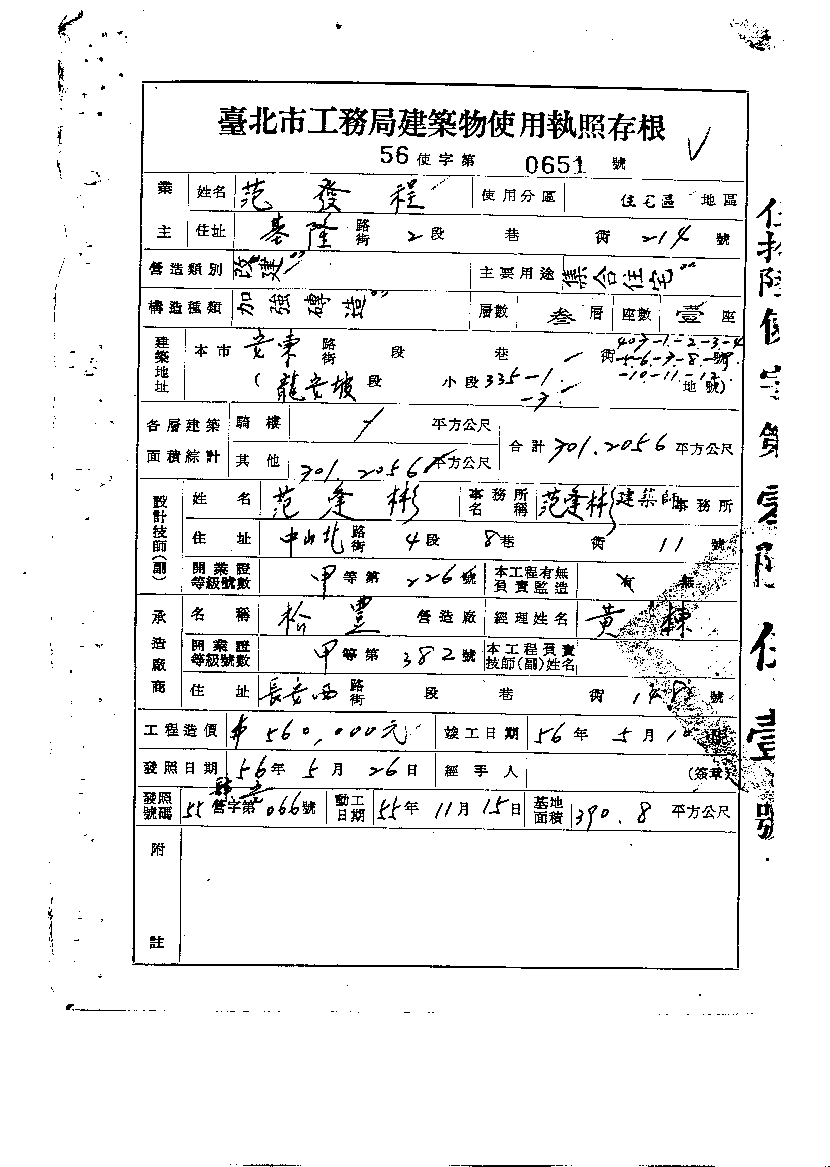 臺北市工務局建築物使用執照存根
56使字第 0651 號
業主 姓名 范發程 使用分區 住宅區 地區
住址 基隆 路街 2段 巷 街 214 號
營造類別 改建 主要用途 集合住宅
構造種類 加強磚造 層數 叁層 座數 壹座
建築地址 本市 安東 路街 段 巷 街
(龍安坡段 小段 335-1 -3 地號)
各層建築面積綜計 騎樓 / 平方公尺 合計 301.2056 平方公尺
其他 301.2056 平方公尺
設計技師(副) 姓名 范逢彬 事務所名稱 范逢彬建築師事務所
住址 中山北 路街 4段 8巷 街 11 號
開業證等級號數 甲等第 226 號 本工程有無負責監造 有 無
承造廠商 名稱 松豊 營造廠 經理姓名 黃棟
開業證等級號數 甲等第 382 號 本工程負責技師(副)姓名
住址 長安西 路街 段 巷 街 148 號
工程造價 $560,000元 竣工日期 56年5月1
發照日期 56年5月26日 經手人 (簽章)
發照號碼 55 營字第 066號 動工日期 55年11月15日 基地面積 390.8 平方公尺
附註